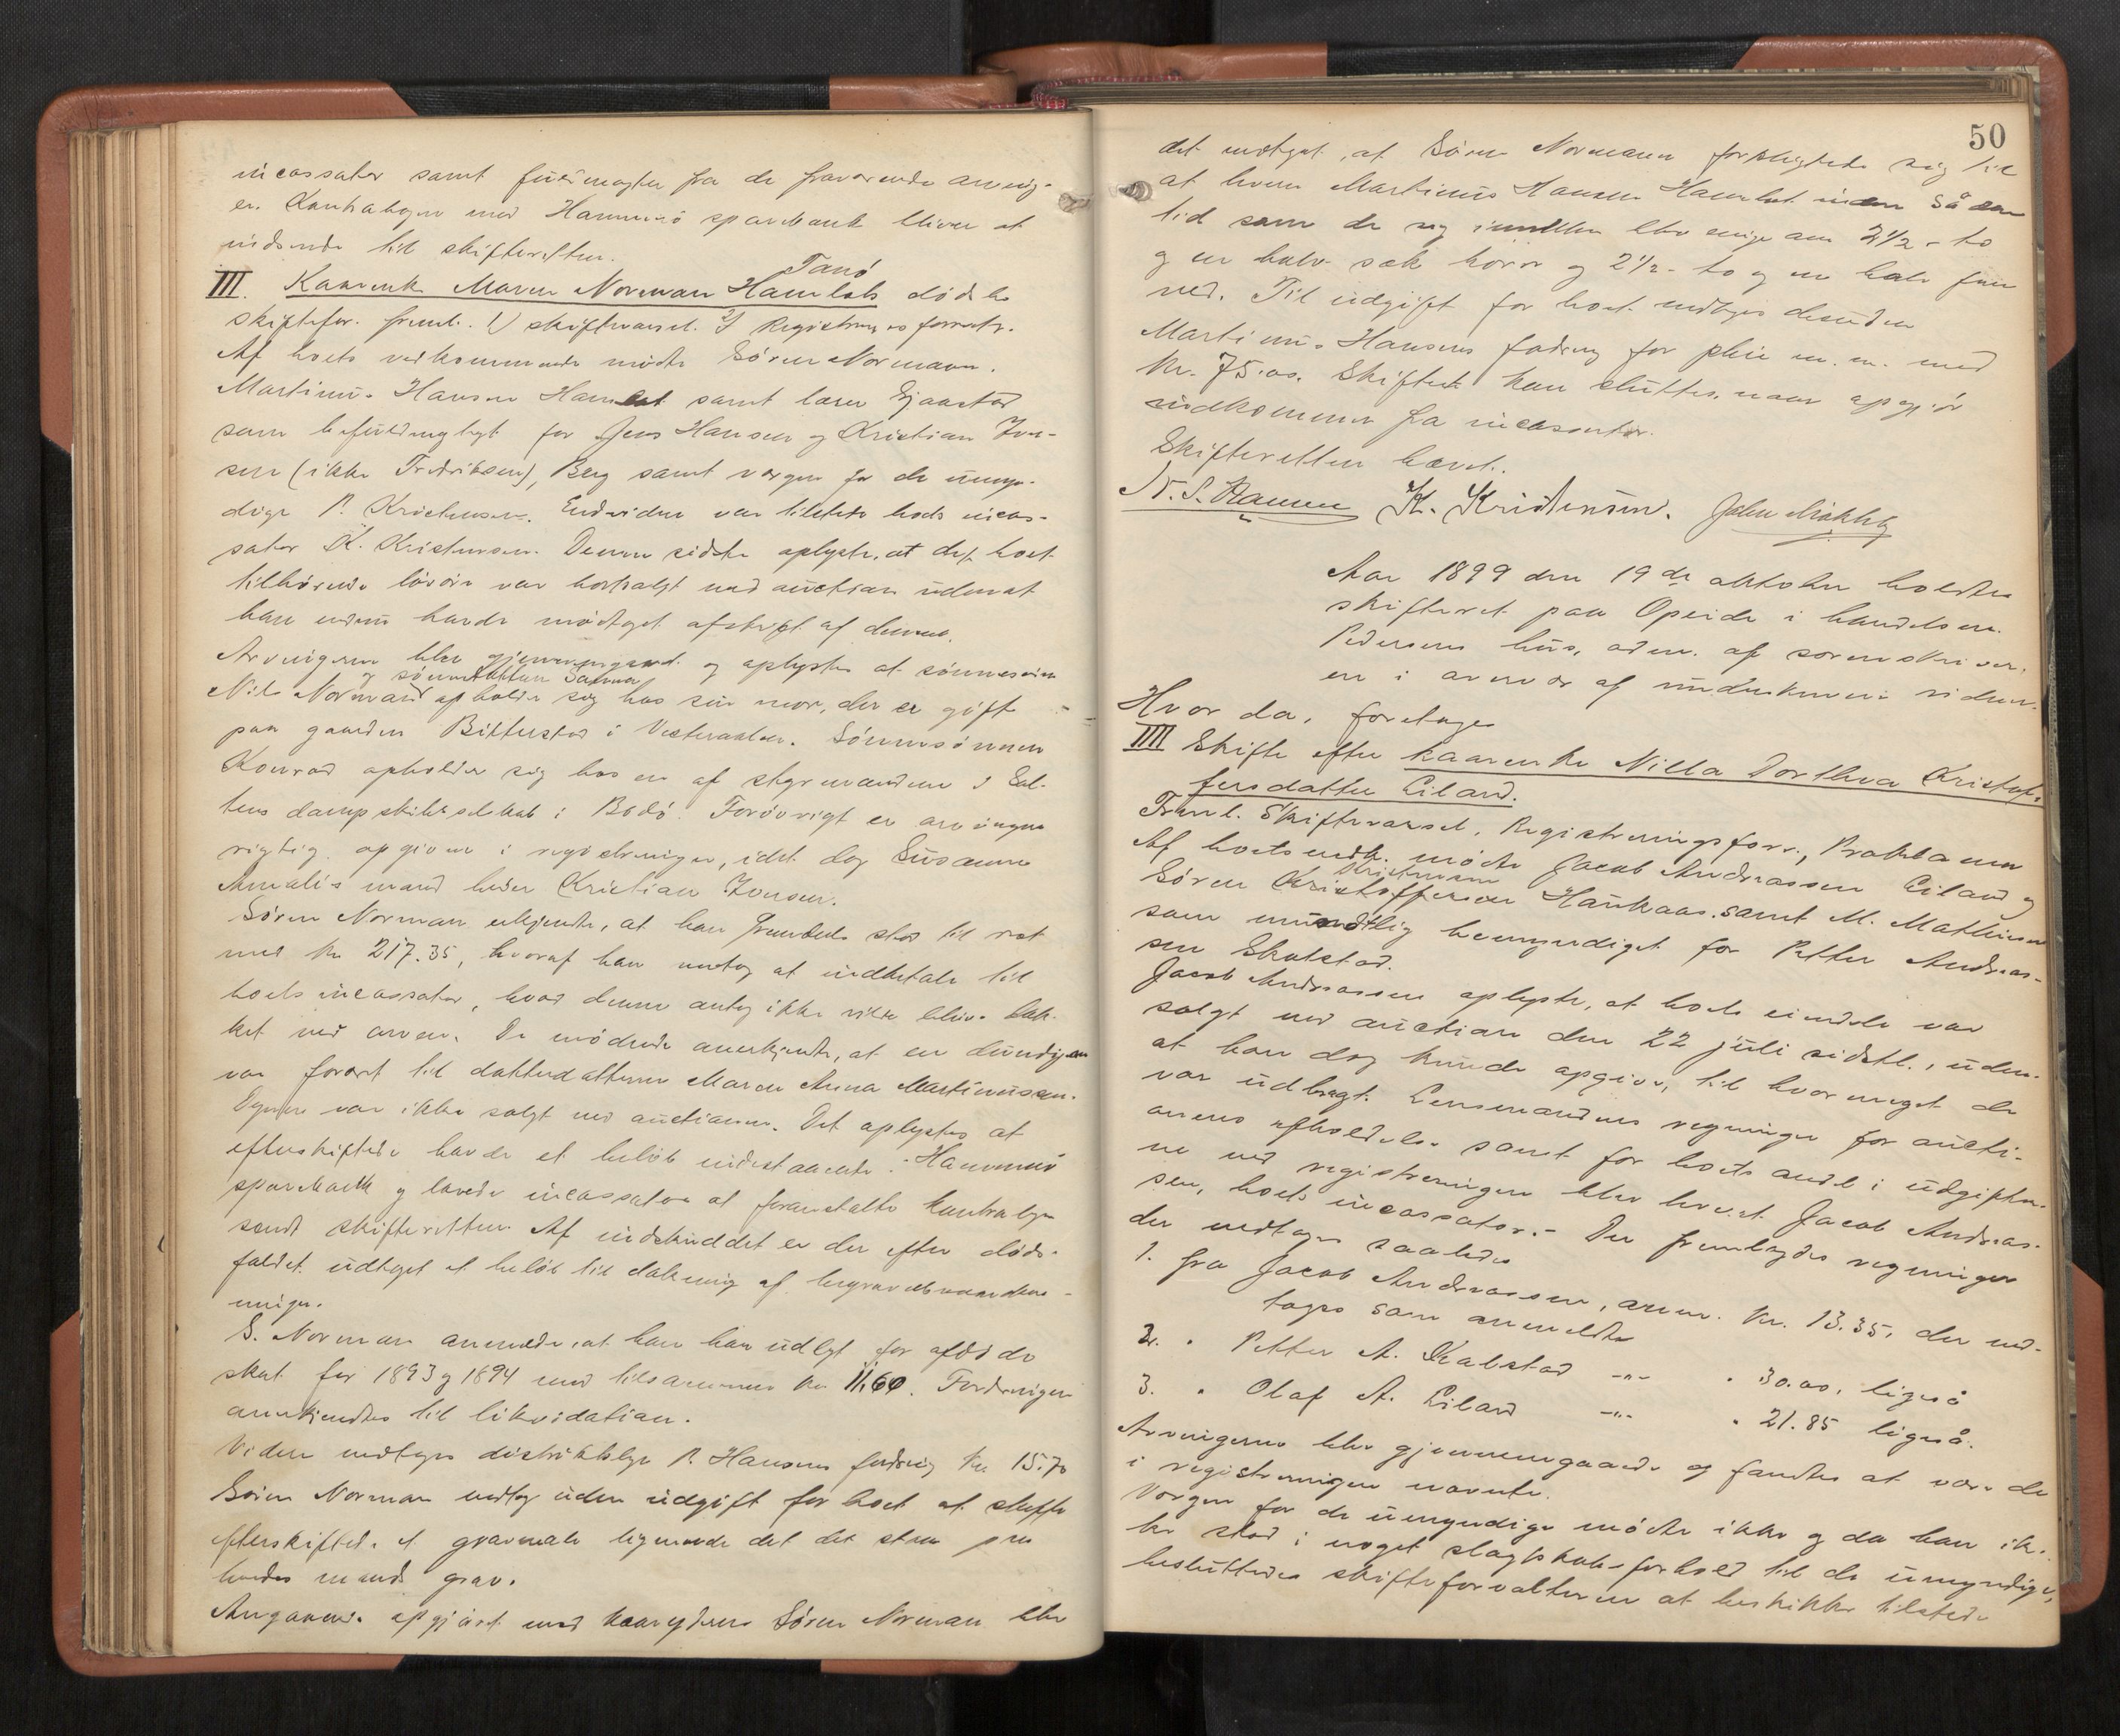 incassator samt fuldmagter fra de fraværende arving-
er. Kontrabogen med Hammerö sparebank bliver at
indsende til skifteretten.
Tanö
III. Kaarenke Maren Norman Hamlots dödsbo
skiftefor. freml. 1) skiftevarsel. 2) Registreringsforretn.
Af boets vedkommende mödte Sören Normann.
Martinus Hansen Hamlot samt lærer Gjaastad
som befuldmægtiget for Jens Hansen og Kristian Jon-
sen (ikke Fredriksen), Berg samt værgen for de umyn-
dige P. Krichensen. Endvidere var tilstede boets incas-
sator K. Kristensen. Denne sidste oplyste, at det boet
tilhörende lösöre var bortsolgt ved auction uden at
han endnu havde modtaget afskrift af denne.
Arvingerne blev gjennemgaaet og oplystes at sönnesönn
og sönnedatteren Sanna
Nils Normand opholder sig hos sin mor, der er gift
paa gaarden Bitterstad i Vesteraalen. Sönnesönnen
Konrad opholder sig hos en af styrmændene i Sal-
tens dampskibsselskab i Bodö. Forövrigt er arvingene
rigtig opgivne i registreringen, idet dog Susanne
Amalis mand heder Kristian Jonsen.
Sören Norman erkjendte, at han fremdeles stod til rest
med kr 217.35, hvoraf han vedtog at indbetale til
boets incassator, hvad denne antog ikke vilde blive dæk-
ket ved arven. De mödende anerkjendte, at en dundyne
var foræret til datterdatteren Maren Anna Martinussen.
Dynen var ikke solgt ved auctionen. Det oplystes at
efterskiftede havde et belöb indestaaende i Hammerö
sparebank og lovede incassator at foranstalte kontrabogen
sendt skifteretten. Af indskuddet er der efter döds-
faldet udtaget et belöb til dækning af begravelsesomkost-
ninger.
S. Norman anmeldte, at han har udlagt for afdöde
skat for 1893 og 1894 med tilsammen kr 11.60. Fordringen
anerkjendtes til likvidation.
Videre vedtoges distriktslæge P. Hansens fordring kr 15.70
Sören Norman vedtog uden udgift for boet at skaffe
efterskiftede et gravmæle lignende det det staar paa
hendes mands grav.
Angaaende opgjöret med kaaryderen Sören Norman blev
50
det vedtaget, at Sören Normann forpligtede sig til
at levere Martinus Hansen Hamlot inden sådan
tid som de sig imellem blev enige om 2½ - to
og en halv sæk korn og 2½ - to og en halv favn
ved. Til udgift for boet vedtoges desuden
Martinus Hansens fordring for pleie m. m. med
kr. 75.00. Skiftet kan sluttes, naar opgjör
indkommer fra incassator.
Skifteretten hævet.
N. S. Hansen K. Kristensen. John Mökleby
Aar 1899 den 19de oktober holdtes
skifteret paa Opeide i handelsm.
Pedersens hus, adm. af sorenskriver-
en i overvær af undertegnede vidner.
Hvor da, foretoges
IIII Skifte efter kaarenke Nilla Dorthea Kristof-
fersdatter Eiland.
Freml. Skiftevarsel, Registreringsforr., Proklama
Af boets vedk. mödte Jacob Andreassen Eiland og
Kristensen
Sören Kristoffersen Haukaas samt M. Mathisen
som mundtlig bemyndiget for Petter Andreas-
sen Skotstad.
Jacob Andreassen oplyste, at boets eiendele var
solgt ved auction den 22 juli sidstl., uden
at han dog kunde opgive, til hvor meget de
var udbragt. Lensmandens regninger for aucti-
onens afholdelse samt for boets andel i udgifter-
ne ved registreringen blev leveret Jacob Andreas-
sen, boets incassator. - Der fremlagdes regninger
der vedtoges saaledes
1. fra Jacob Andreassen, anm. kr. 13.35, der ved-
toges som anmeldt
2. " Petter A. Skotstad -"- " 30.00, ligeså
3. " Olaf A. Eiland -"- " 21.85 ligeså.
Arvingerne blev gjennemgaaede og fandtes at være de
i registreringen nævnte.
Værgen for de umyndige mödte ikke og da han ik-
ke stod i noget slagtskabsforhold til de umyndige,
besluttedes skifteforvalteren at beskikke tilstede